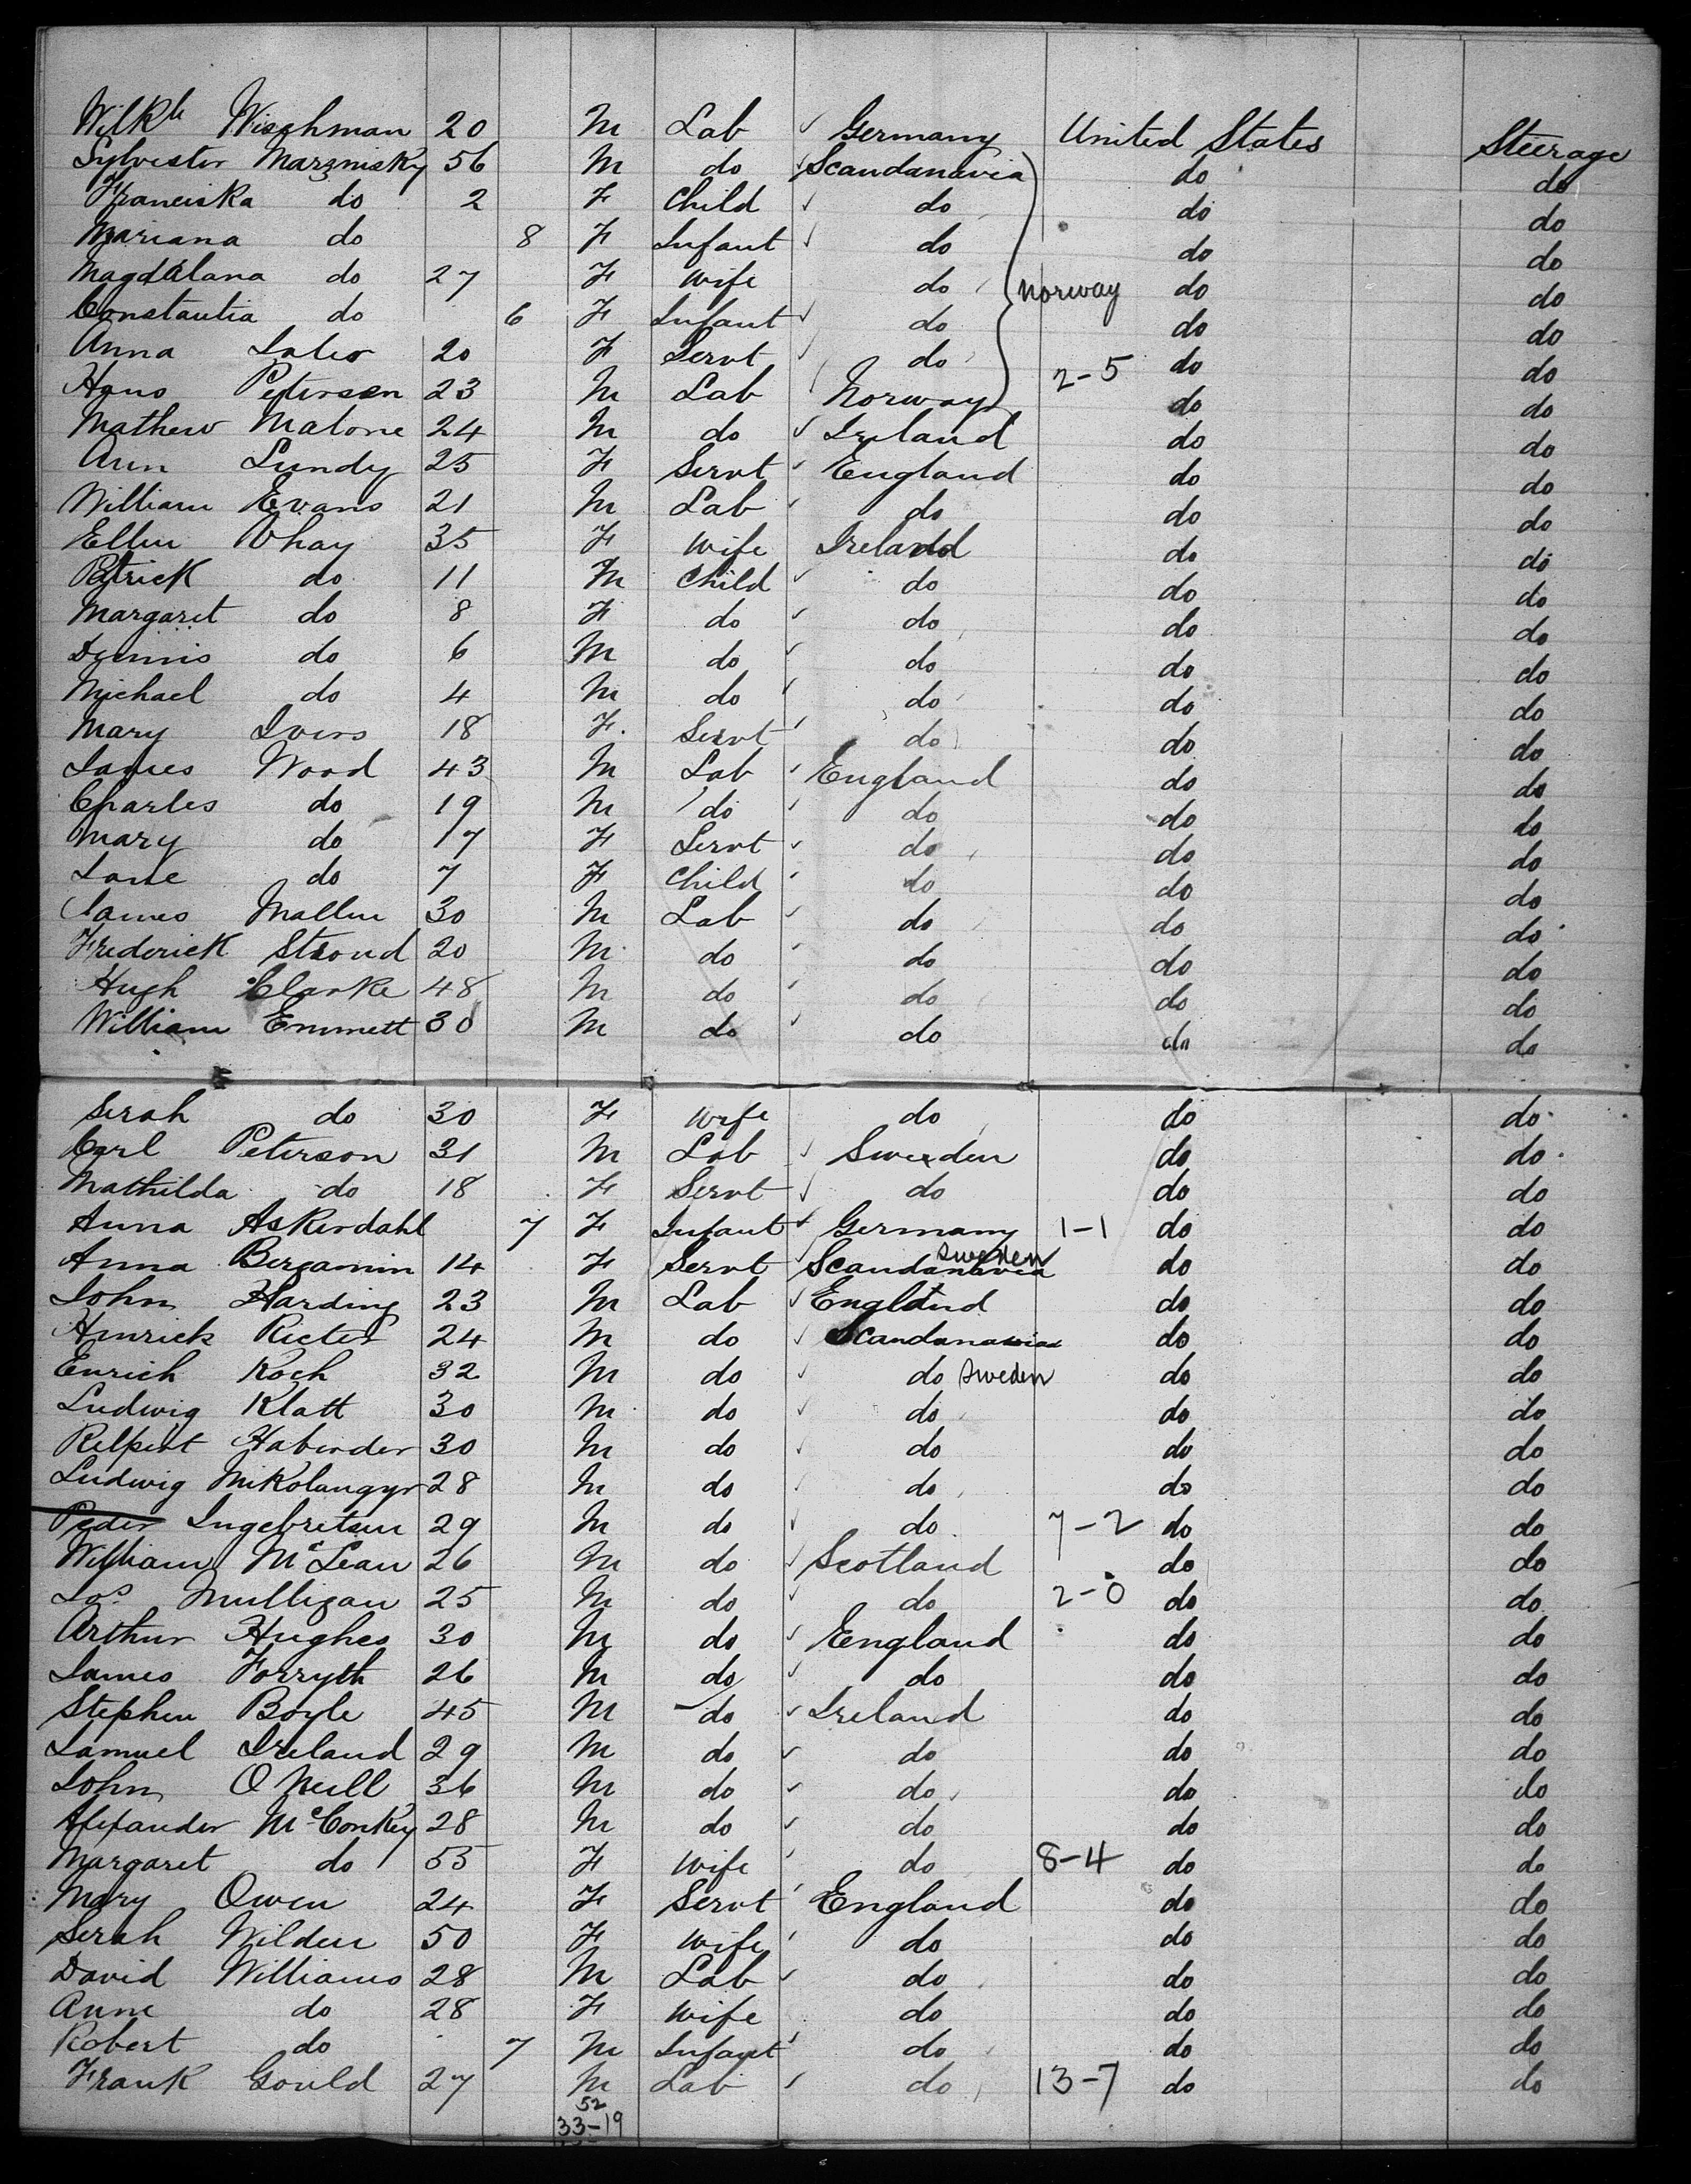 Wilh Wischman 20 M Lab Germany United States Steerage
Sylvester Marzmisky 56 M do Scandanavia do do
Franciska do 2 F Child do do do
Mariana do 8 F Infant do do do
Magdalana do 27 F Wife do Norway do do
Constantia do 6 F Infant do do do
Anna 20 F Servt do do do
Hans Petersen 23 M Lab Norway 2-5 do do
Mathew Malone 24 M do Ireland do do
Ann Lundy 25 F Servt England do do
William Evans 21 M Lab do do do
Ellen 35 F Wife Ireland do do
Patrick do 11 M Child do do do
Margaret do 8 F do do do do
Dennis do 6 M do do do do
Michael do 4 M do do do do
Mary Ivers 18 F. Servt do do do
James Wood 43 M Lab England do do
Charles do 19 M do do do do
Mary do 17 F Servt do do do
Jane do 7 F Child do do do
James Mallen 30 M Lab do do do
Frederick Stroud 20 M do do do do
Hugh Clarke 48 M do do do do
William Emmett 30 M do do do do
Serah do 30 F Wife do do do
Carl Peterson 31 M Lab Sweden do do
Mathilda do 18 F Servt do do do
Anna Askerdahl 7 F Infant Germany 1-1 do do
Anna Bergamin 14 F Servt Scandanavia Sweden do do
John Harding 23 M Lab England do do
Hinrick Rieter 24 M do Scandanavia do do
Enrich Koch 32 M do do Sweden do do
Ludwig Klatt 30 M do do do do
Haberder 30 M do do do do
Ludwig Mikolangyr 28 M do do do do
Peder Ingebretsen 29 M do do 7-2 do do
William McLean 26 M do Scotland do do
Jas Mulligan 25 M do do 2-0 do do
Arthur Hughes 30 M do England do do
James Forryth 26 M do do do do
Stephen Boyle 45 M do Ireland do do
Samuel Ireland 29 M do do do do
John O Neill 36 M do do do do
Alexander McConkey 28 M do do do do
Margaret do 55 F Wife do 8-4 do do
Mary Owen 24 F Servt England do do
Serah Wilden 50 F Wife do do do
David Williams 28 M Lab do do do
Anne do 28 F Wife do do do
Robert do 7 M Infant do do do
Frank Gould 27 M Lab do 13-7 do do
52
33-19